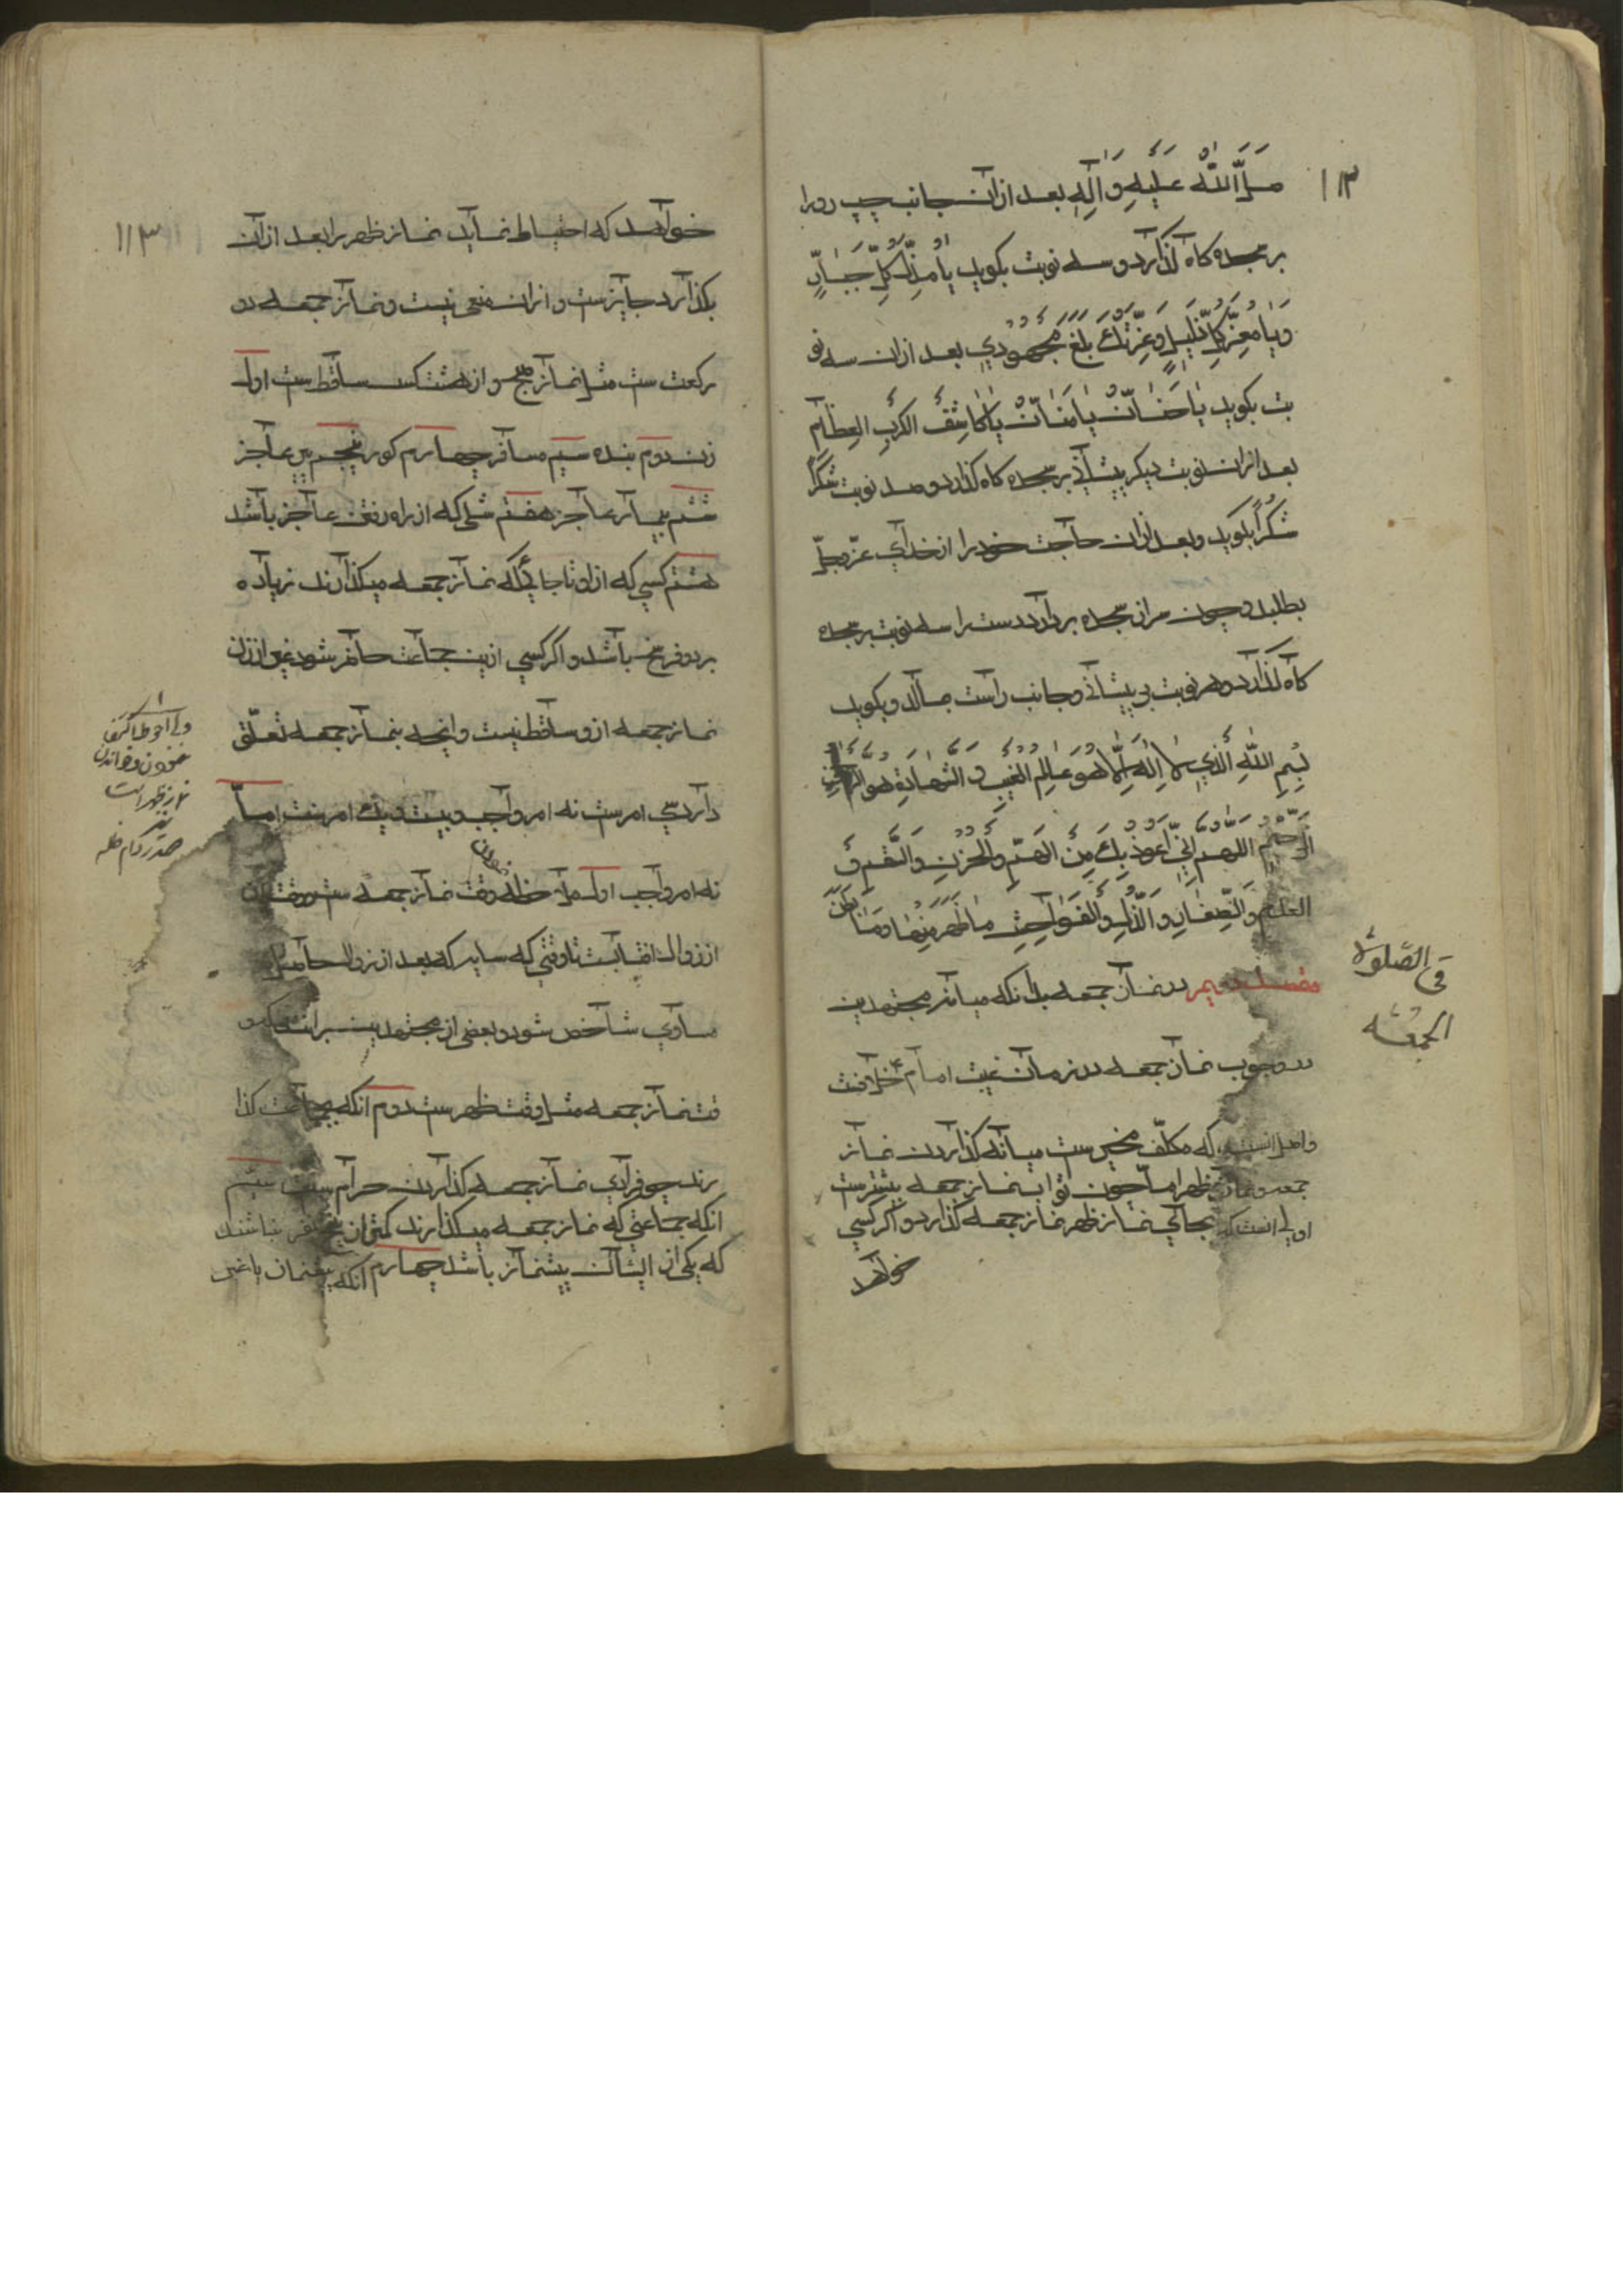 ۱۱۳
صَلَّی اللّٰهُ عَلَیْهِ وَاٰلِهِ بعد ازان جانب چپ رو را
بر سجده کاه گذارد و سه نوبت بکوید یٰا مُذِلَّ کُلِّ جَبّٰارٍ
وَیٰا مُعِزَّ کُلِّ ذَلیٖلٍ وَعِزَّتِكَ بَلَغَ مَجْهُودیٖ بعد ازان سه نو
بت بکوید یٰا حَنّٰانُ یٰا مَنّٰانُ یٰا کٰاشِفَ الکُرَبِ العِظٰامِ
بعد ازان نوبت دیکر پیشانی بر سجده کاه گذارد و صد نوبت شکرًا
شُکْرًا بکوید و بعد ازان حاجت خود را از خدای عزّ و جلّ
بطلبد و چون سر از سجده بردارد دست را سه نوبت بر سجده
کاه گذارد و هر نوبت بر پیشانی و جانب راست بمالد و بکوید
بِسْمِ اللّٰهِ الَّذیٖ لٰا اِلٰهَ اِلّٰا هُوَ عٰالِمُ الْغَیْبِ وَ الشَّهٰادَةِ هُوَ الرَّحْمٰنُ
الرَّحیٖمُ اللّٰهُمَّ اِنّیٖ اَعُوذُ بِكَ مِنَ الْهَمِّ وَالْحُزْنِ وَالسُّقْمِ وَ
العدم وَالصِّغٰارِ وَ الذُّلِّ وَالْفَوٰاحِشِ مٰا ظَهَرَ مِنْهٰا وَمٰا بَطَنَ
در نماز جمعه بدانکه میانه مجتهدین
در وجوب نماز جمعه در زمان غیبت امام خلافست
واصل انست که مکلّف مخیرست میانه کذاردن نماز
جمعه و نماز ظهر اما چون ثواب نماز جمعه بیشترست
اولی انست که بجای نماز ظهر نماز جمعه گذارد و اگر کسی
خواهد
فی الصّلوة
الجمعه
۱۱۳
خواهد که احتیاط نماید نماز ظهر را بعد ازان
بکذارد جایزست و ازان منعی نیست و نماز جمعه دو
رکعت ست مثل نماز صبح و از هشت کس ساقط ست اول
زن دوم بنده سیم مسافر چهارم کور پنجم پیر عاجز
ششم بیمار عاجز هفتم شلی که از راه رفتن عاجز باشد
هشتم کسی که از او تا جائیکه نماز جمعه میکذارند زیاده
بر دو فرسخ باشد و اگر کسی ازین جماعت حاضر شود غیر از زن
نماز جمعه ازو ساقط نیست وانچه بنماز جمعه تعلّق
دارد سی امرست نه امر واجب و بیست و یك امر سنت امّا
نه امر واجب اول ملاحظه وقت نماز جمعه ست و وقت آن
از زوال افتابست تا وقتی که سایه که بعد از زوال حاصل
مساوی شاخص شود و بعضی از مجتهدین برانند که و
قت نماز جمعه مثل وقت ظهرست دوم انکه بجماعت کذا
رند چه فرادی نماز جمعه کذاردن حرام ست سیّم
انکه جماعتی که نماز جمعه میکذارند کمتر از پنج نفر نباشند
که یکی از ایشان پیشنماز باشد چهارم انکه پیشنماز یا غیر